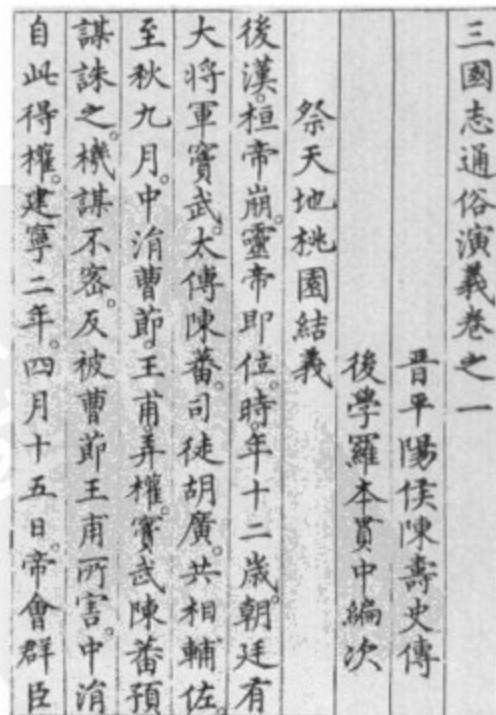 三國志通俗演義卷之一
晉平陽侯陳壽史傳
後學羅本貫中編次
祭天地桃園結義
後漢。桓帝崩。靈帝即位。時年十二歲。朝廷有
大將軍竇武。太傅陳蕃。司徒胡廣。共相輔佐。
至秋九月。中涓曹節。王甫。弄權。竇武陳蕃預
謀誅之。機謀不密。反被曹節王甫所害。中涓
自此得權。建寧二年。四月十五日。帝會群臣